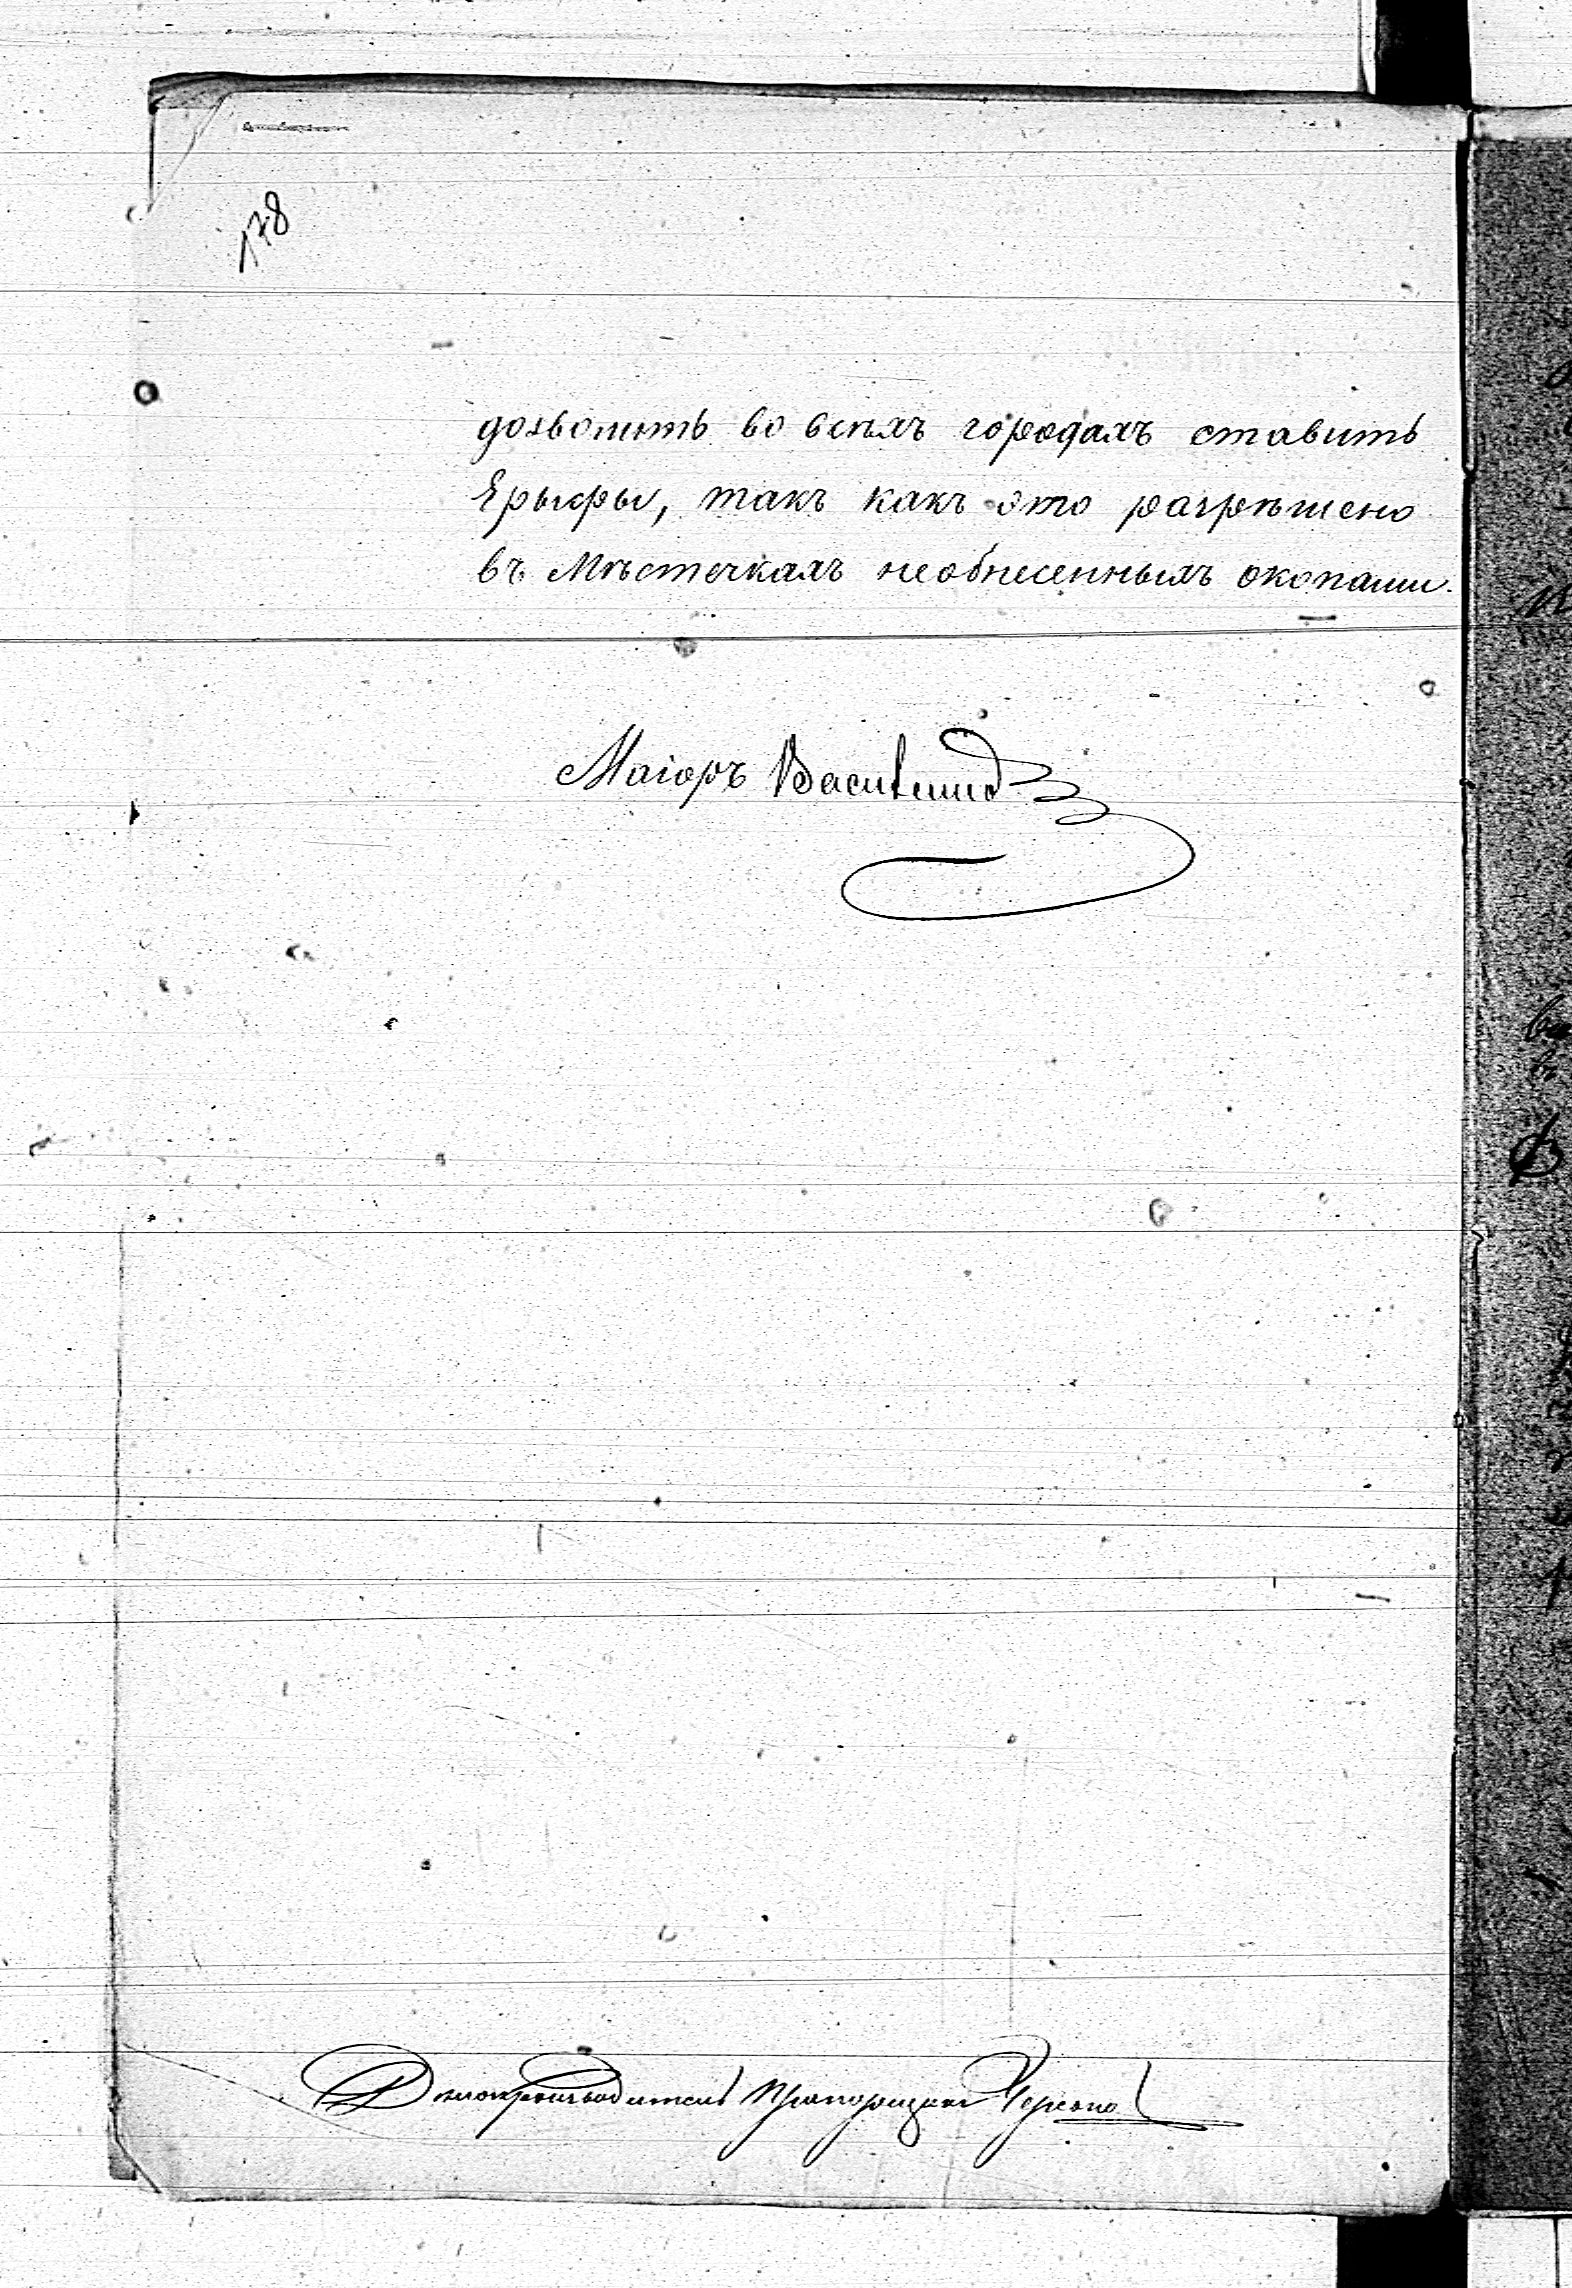 178
дозволить во всѣхъ городахъ ставить
Ерыфы, такъ какъ это разрѣшено
въ Мѣстечкахъ необнесенныхъ окопами.
Маіоръ
Делопроизводитель Прапорщикъ